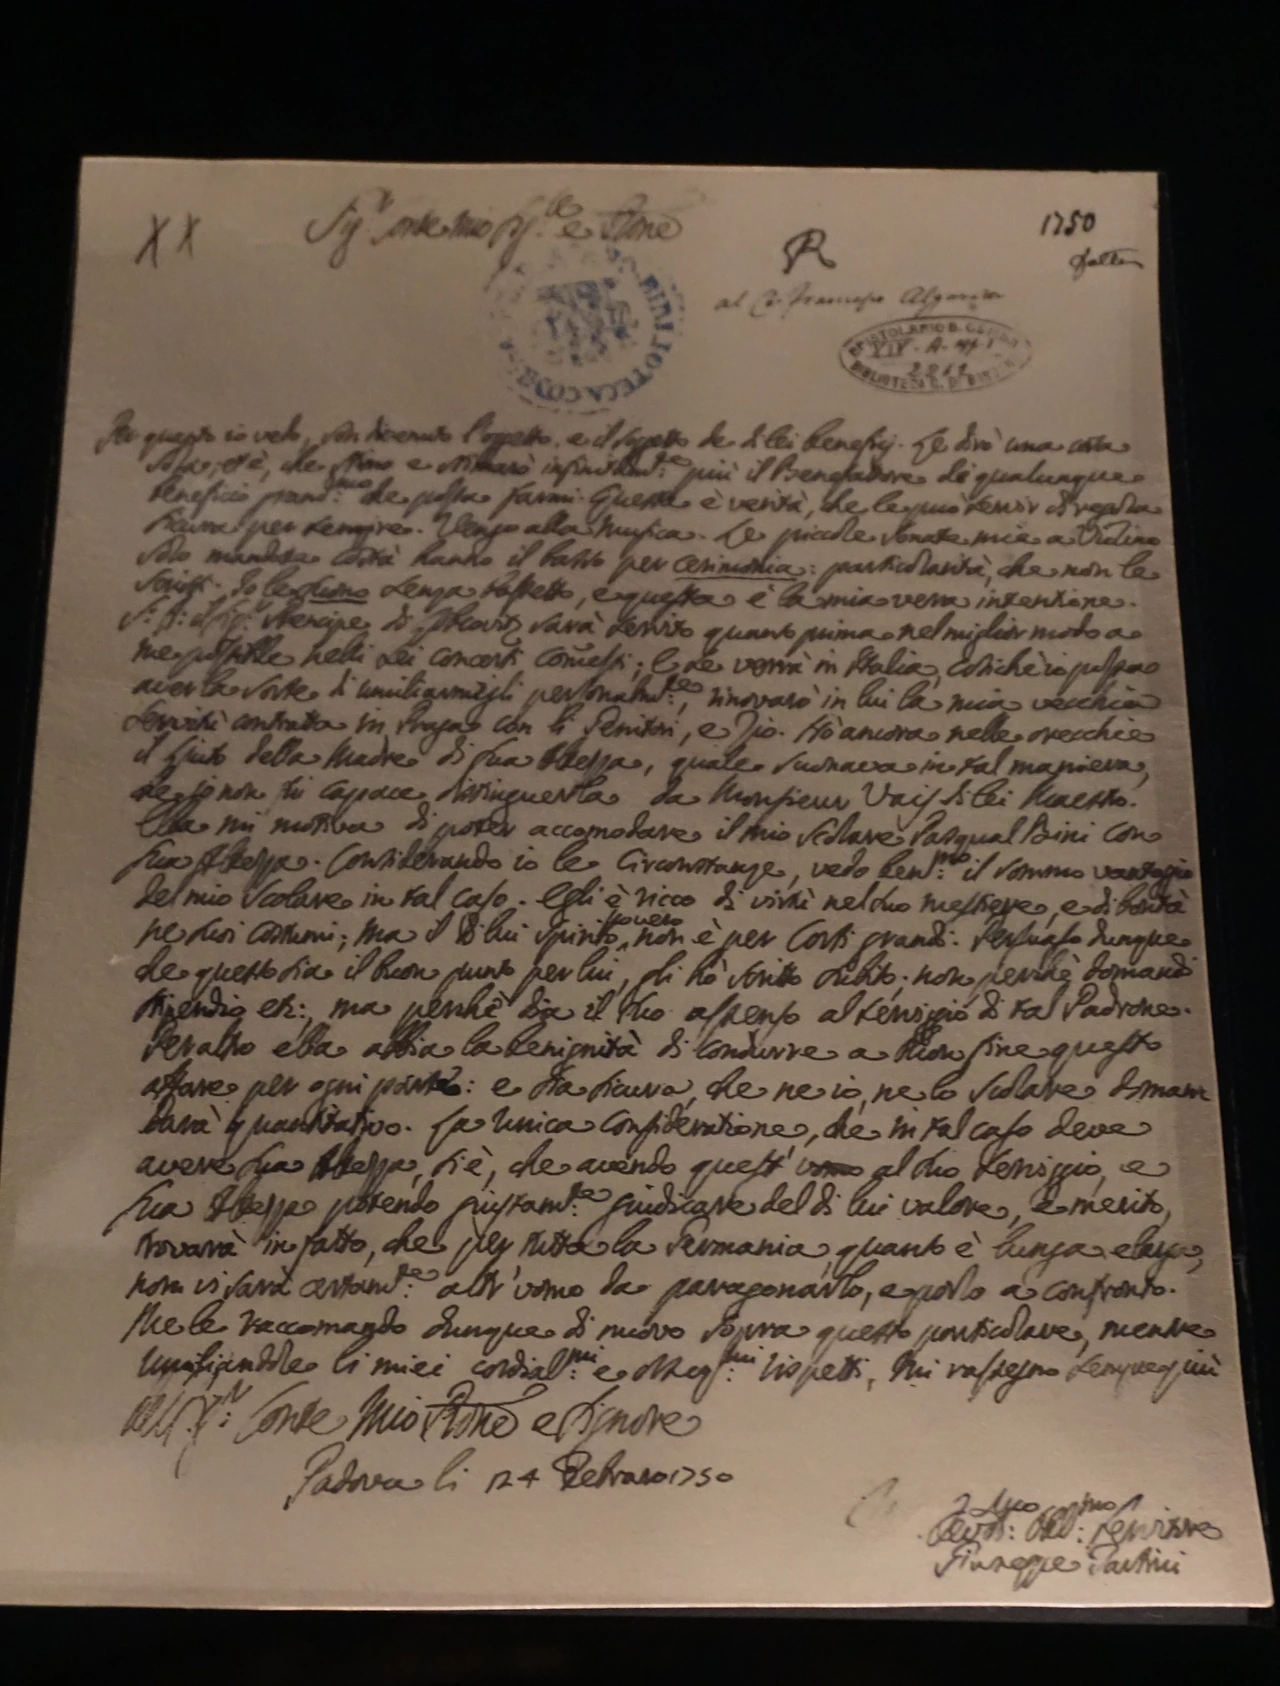 XX
Sig.r Conte mio Sig.le e Prone
R
1750
al Co. Francesco Algarotti
BIBLIOTECA CO
EPISTOLARIO B. GAMBA
XIV - A -
BIBLIOTECA C. DI BASSAN
Per quanto io vedo, son divenuto l'oggetto, e il soggetto de di lei beneficj. Le dirò una cosa
sola, et è, che stimo e stimarò infinitam.te più il Benefattore di qualunque
beneficio grand.mo che possa farmi. Questa è verità, che le può servir di regola
sicura per sempre. Vengo alla Musica. Le piccole Sonate mie a Violino
solo mandate costà hanno il basso per cerimonia: particolarità, che non le
scrissi. Io le suono senza bassetto, e questa è la mia vera intentione.
S. A: il Sig.r Prencipe di Lbcovitz sarà servito quanto prima nel miglior modo a
me possibile nelli sei concerti comessi; e se verrà in Italia, cosichè io possa
aver la sorte di umiliarmigli personalm.te, rinovarò in lui la mia vecchia
servitù contratta in Praga con li Genitori, e Zio. Hò ancora nelle orecchie
il Liuto della Madre di Sua Altezza, quale suonava in tal maniera,
che io non fui capace distinguerla da Monsieur Vais di lei Maestro.
Ella mi motiva di poter accomodare il mio Scolare Pasqual Bini con
Sua Altezza. Considerando io le circonstanze, vedo ben.mo il sommo vantaggio
del mio Scolare in tal caso. Egli è ricco di virtù nel suo mestiere, e di bontà
ne suoi costumi; ma il di lui spirito povero non è per Corti grandi. Persuaso dunque
che questo sia il buon punto per lui, gli hò scritto subito; non perchè domandi
stipendio etc:, ma perchè dia il suo assenso al servigio di tal Padrone.
Peraltro ella abbia la benignità di condurre a buon fine questo
affare per ogni parte: e sia sicura, che ne io, ne lo Scolare doman
darà quantitativo. La unica consideratione, che in tal caso deve
avere Sua Altezza, si è, che avendo quest'uomo al suo serviggio, e
Sua Altezza potendo giustam.te giudicare del di lui valore, e merito,
trovarà in fatto, che per tutta la Germania, quanto è lunga e larga,
non vi sarà certam.te altr'uomo da paragonarlo, e porlo a confronto.
Me le raccomando dunque di nuovo sopra questo particolare, mentre
umiliandole li miei cordial.mi e osseq.mi rispetti, mi rassegno sempre più
Conte Mio Prone e Signore
Padova li 24 Febraro 1750
Devot: Obl.mo Servitore
Giuseppe Tartini